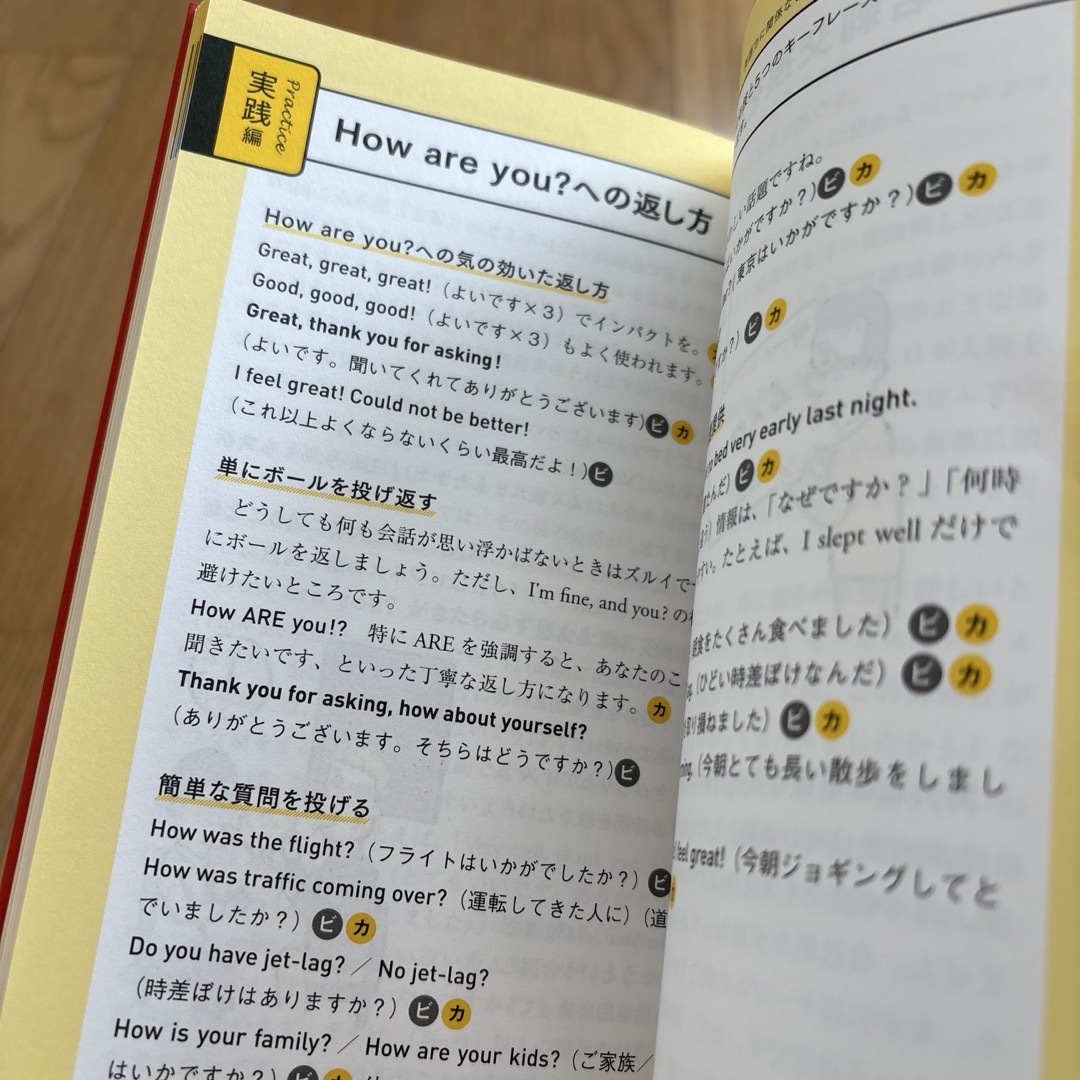 Practice
実践編
How are you?への返し方
How are you?への気の効いた返し方
Great, great, great!（よいです×３）でインパクトを。
Good, good, good!（よいです×３）もよく使われます。
Great, thank you for asking!
（よいです。聞いてくれてありがとうございます）ビ カ
I feel great! Could not be better!
（これ以上よくならないくらい最高だよ！）ビ
単にボールを投げ返す
どうしても何も会話が思い浮かばないときはズルイで
にボールを返しましょう。ただし、I'm fine, and you? の
避けたいところです。
How ARE you!?　特に ARE を強調すると、あなたのこ
聞きたいです、といった丁寧な返し方になります。カ
Thank you for asking, how about yourself?
（ありがとうございます。そちらはどうですか？）ビ
簡単な質問を投げる
How was the flight?（フライトはいかがでしたか？）ビ
How was traffic coming over?（運転してきた人に）（道
でいましたか？）ビ カ
Do you have jet-lag? ／ No jet-lag?
（時差ぼけはありますか？）ビ カ
How is your family? ／ How are your kids?（ご家族／
はいかですか？）ビ カ
に関係な
と5つのキーフレーズ
しい話題ですね。
いかがですか？）ビ カ
（東京はいかがですか？）ビ カ
か？）ビ カ
bed very early last night.
たんだ）ビ カ
情報は、「なぜですか？」「何時
たとえば、I slept well だけで
食をたくさん食べました）ビ カ
（ひどい時差ぼけなんだ）ビ カ
り損ねました）ビ カ
（今朝とても長い散歩をしまし
feel great!（今朝ジョギングしてと